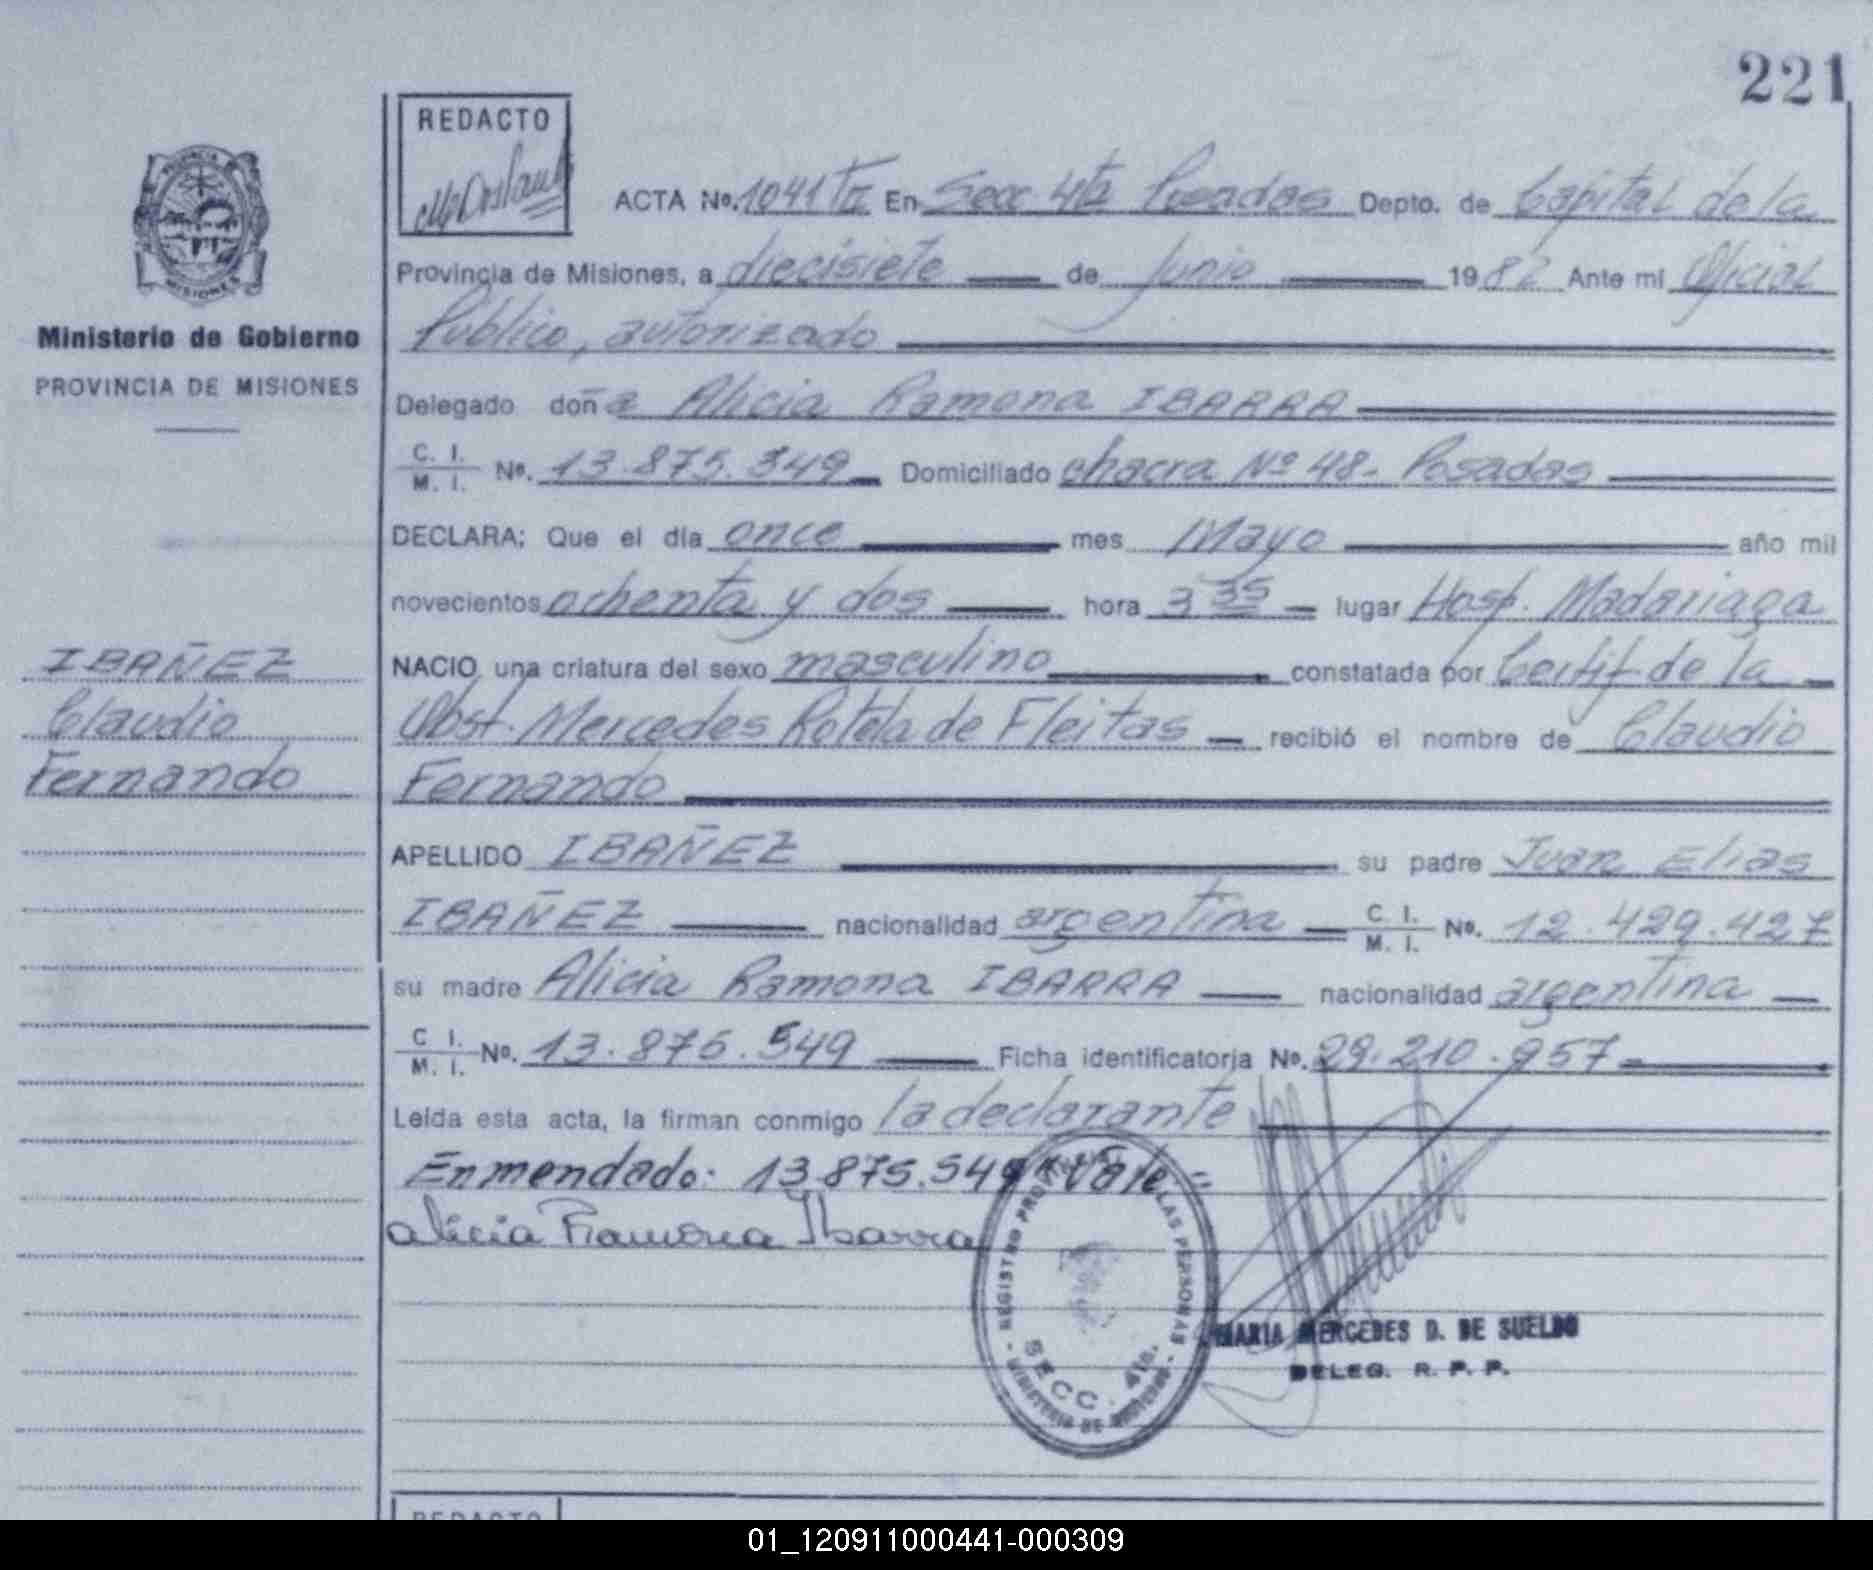 221
REDACTO
ACTA No. 1041 TII En Secc 4ta Posadas Depto. de Capital de la
Provincia de Misiones, a diecisiete de Junio 1982 Ante mi Oficial
Público, autorizado
Ministerio de Gobierno
PROVINCIA DE MISIONES
Delegado doña Alicia Ramona IBARRA
C. I. M. I. No. 13.875.549 Domiciliado chacra Nº 48- Posadas
DECLARA: Que el día once mes Mayo año mil
novecientos ochenta y dos hora 3 35 lugar Hosp. Madariaga
NACIO una criatura del sexo masculino constatada por Certif de la
Obst. Mercedes Rotela de Fleitas recibió el nombre de Claudio
Fernando
IBAÑEZ
Claudio
Fernando
APELLIDO IBAÑEZ su padre Juan Elias
IBAÑEZ nacionalidad argentina C. I. M. I. No. 12.429.427
su madre Alicia Ramona IBARRA nacionalidad argentina
C. I. M. I. No. 13.875.549 Ficha identificatoria No. 29.210.957
Leída esta acta, la firman conmigo la declarante
Enmendado: 13.875.549 "Vale=
Alicia Ramona Ibarra
PROVINCIA
MISIONES
REGISTRO PROV. DE LAS PERSONAS
SECC. 4ta.
MINISTERIO DE GOBIERNO
MARIA MERCEDES D. DE SUELDO
DELEG. R. P. P.
REDACTO
01_120911000441-000309